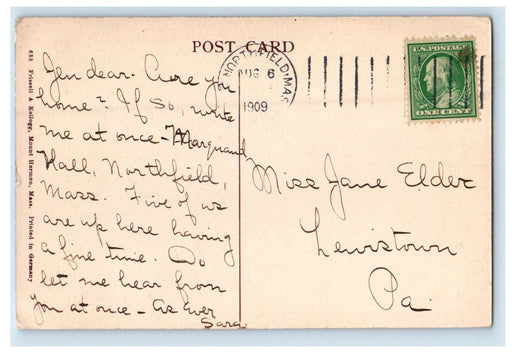 POST CARD
NORTHFIELD. MAS
AUG 6
1909
U.S. POSTAGE
ONE CENT
Jen dear. Are you
home? If so, write
me at once - Marquand
Hall, Northfield,
Mass. Five of us
are up here having
a fine time. Do
let me hear from
you at once - As ever
Sara.
Miss Jane Elder
Lewistown
Pa.
635 Frissell & Kellogg, Mount Hermon, Mass. Printed in Germany